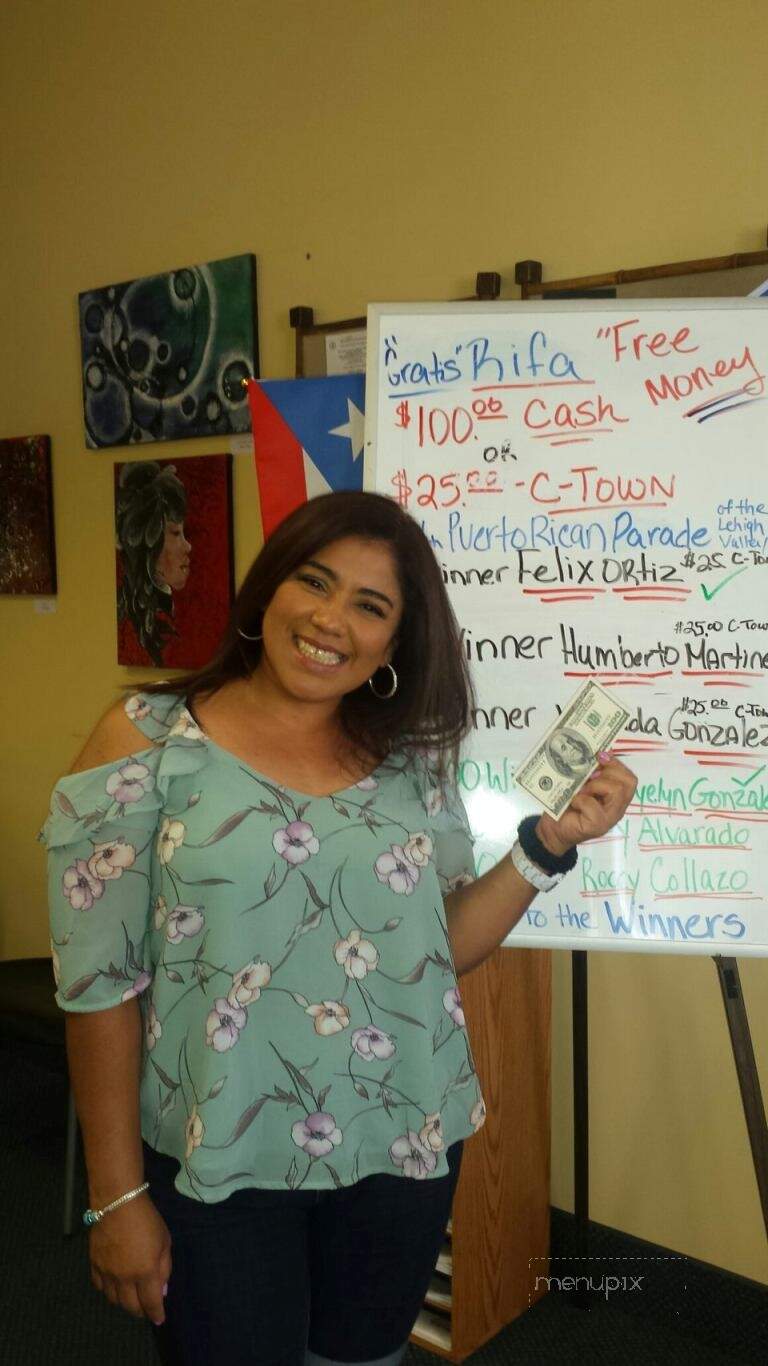 "Gratis" Rifa "Free Money"
$100.00 Cash
OR
$25.00 - C-TOWN
Puerto Rican Parade of the Lehigh Valley
inner Felix Ortiz $25 C-To
inner Humberto Martine $25.00 C-Tow
nner da Gonzalez $25.00 C-To
00 Wi yelyn Gonzale
y Alvarado
Rocky Collazo
to the Winners
100
menupix